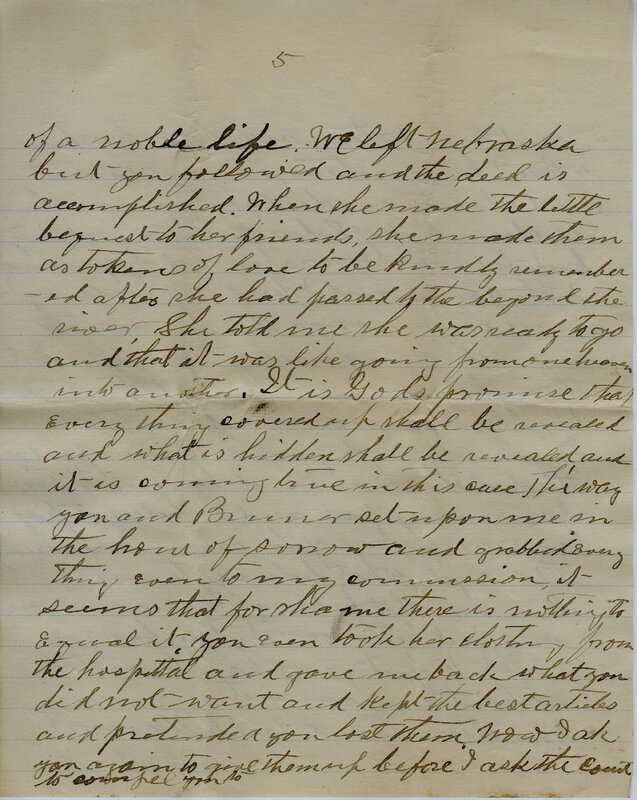 5
of a noble life. We left Nebraska
but you followed and the deed is
accomplished. When she made the little
bequest to her friends, she made them
as tokens of love to be kindly remember
-ed after she had passed to the beyond the
river, She told me she was ready to go
and that it was like going from one heaven
into another. It is Gods promise that
every thing covered up shall be revealed
and what is hidden shall be revealed and
it is coming true in this case The way
you and Bruner set upon me in
the hour of sorrow and grabbed every
thing even to my commission, it
seems that for shame there is nothing to
equal it you even took her clothing from
the hospital and gave me back what you
did not want and kept the best articles
and pretended you lost them, Now I ask
you again to give them up before I ask the court
to compel you to